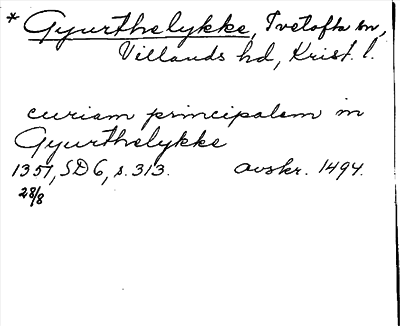 * Gyurthelykke, Tvetofta sn,
Villands hd, Krist. l.
curiam principalem in
Gyurthelykke
1357, SD 6, s. 313. avskr. 1494.
28/8